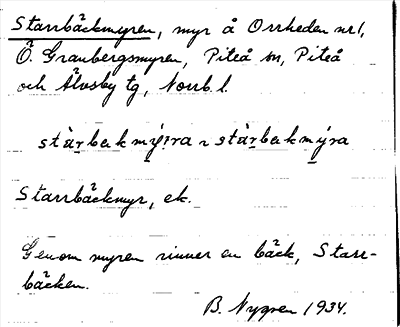 Starrbäckmyren, myr å Orrheden nr 1,
Ö. Granbergsmyren, Piteå sn, Piteå
och Älvsby tg, Norrb. l.
Starrbäckmyr, ek.
Genom myren rinner en bäck, Starr-
bäcken.
B. Nygren 1934.